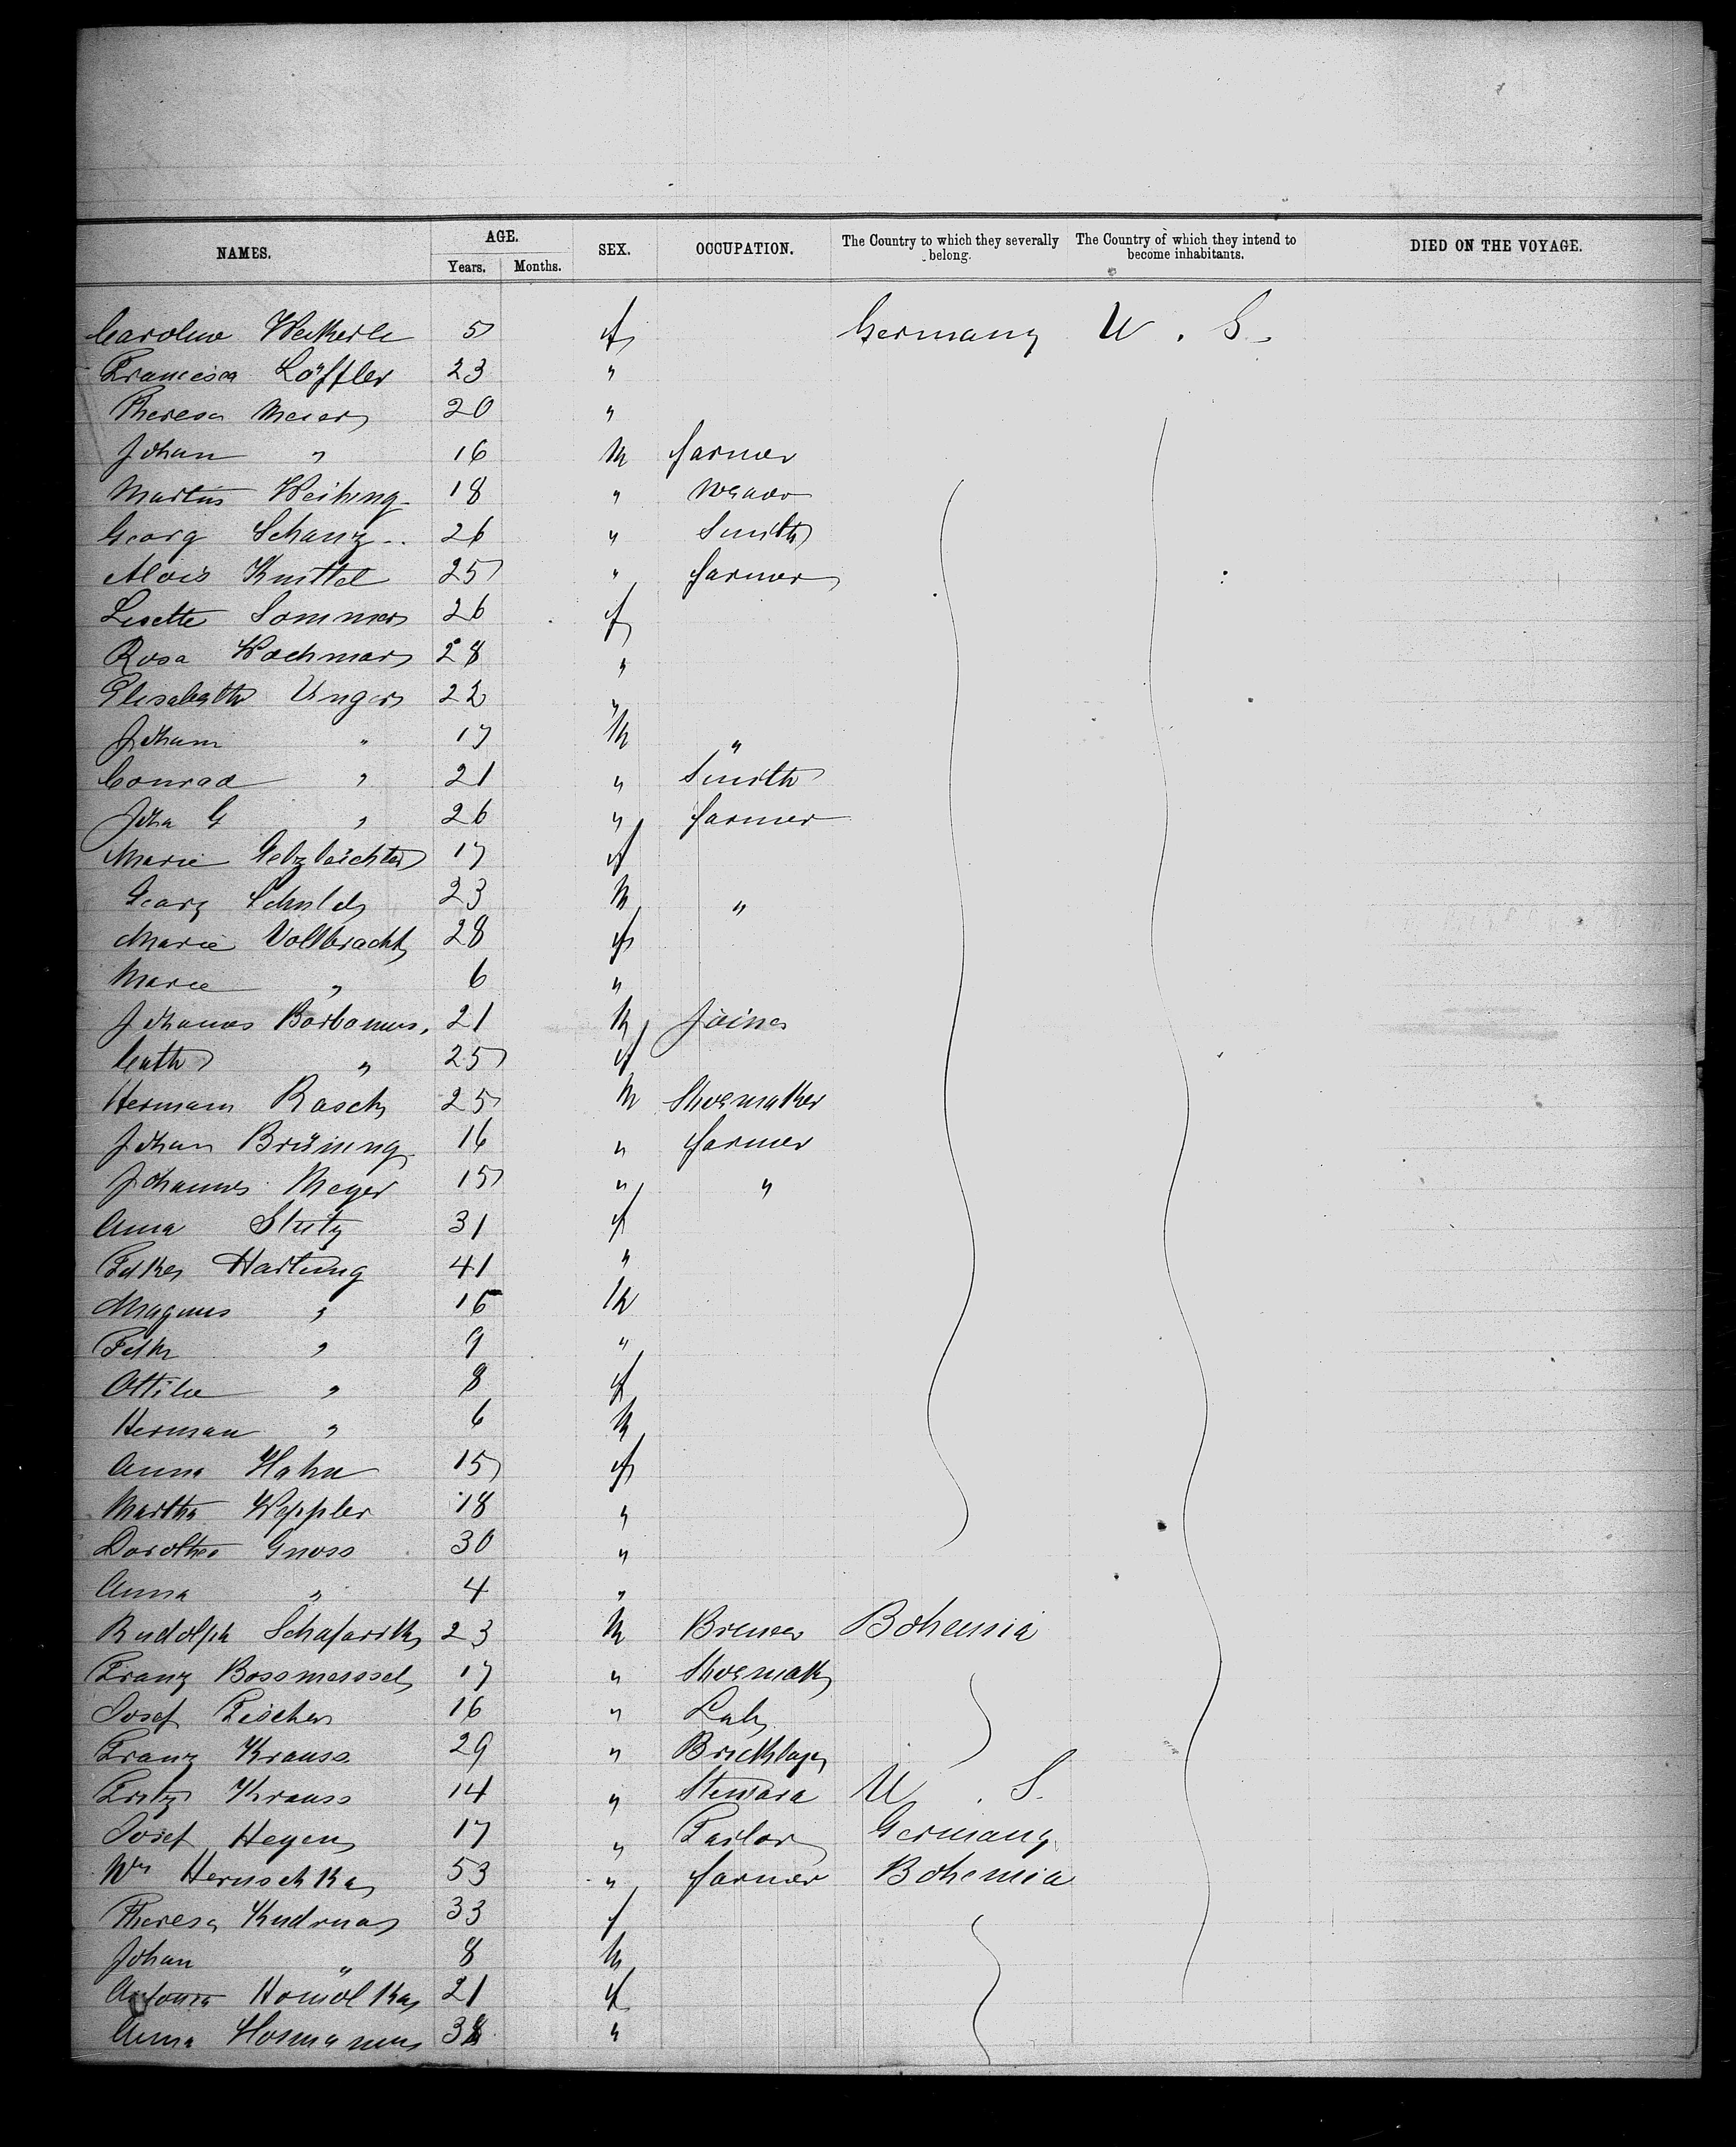 NAMES. AGE. SEX. OCCUPATION. The Country to which they severally belong. The Country of which they intend to become inhabitants. DIED ON THE VOYAGE.
Years. Months.
Caroline 5 f Germany U. S.
Francisca Löffler 23 "
Theresa Meier 20 "
Johan " 16 M farmer
Martin Weihing 18 " weaver
Georg Schanz 26 " Smith
Alois Knittel 25 " farmer
Lisette Sommer 26 f
Rosa 28 "
Elisabeth Unger 22 "
Johann " 17 M "
Conrad " 21 " Smith
Joha G " 26 " farmer
Marie 17 f
Georg 23 M "
Marie Vollbracht 28 f
Marie " 6 "
Johannes 21 M Joiner
Cath " 25 f
Hermann Rasch 25 M Shoemaker
Johan Brüning 16 " farmer
Johannes Meyer 15 " "
Anna Stutz 31 f
Hartung 41 "
Magnus " 16 M
" 9 "
Ottilie " 8 f
Herman " 6 M
Anna Hahn 15 f
Martha Weppler 18 "
Dorothea Gnoss 30 "
Anna " 4 "
Rudolph Schafarik 23 M Brewer Bohemia
Franz 17 " Shoemak
Josef Fischer 16 " Lab
Franz Krauss 29 " Bricklayer
Fritz Krauss 14 " Steward U. S.
Josef Heyen 17 " Tailor Germany
Wm Hernschka 53 " farmer Bohemia
Theresa Kudrna 33 f
Johan " 8 M
Antonia Homolka 21 f
Anna "